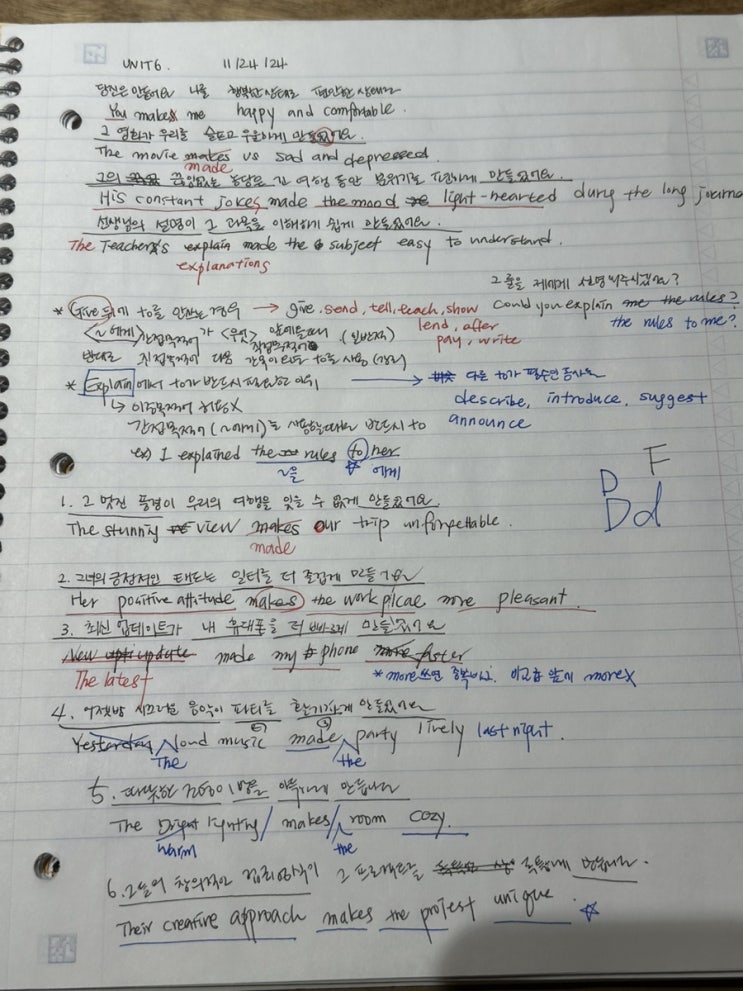 UNIT6. 11/24/24
당신은 만들어요 나를 행복한 상태로 편안한 상태로
You makes me happy and comfortable.
그 영화가 우리를 슬프고 우울하게 만들었어요
The movie makes us sad and depressed.
made
그의 끊임없는 농담은 긴 여행 동안 분위기를 편하게 만들었어요.
His constant jokes made the mood light-hearted during the long journe
선생님의 설명이 그 과목을 이해하기 쉽게 만들었어요.
The Teacher's explain made the subject easy to understand.
explanations
그 룰을 제에게 설명해주시겠어요?
* Give 뒤에 to를 안쓰는 경우 → give, send, tell, teach, show could you explain me the rules?
lend, after the rules to me?
<~에게> 간접목적어 가 <무엇> 직접목적어 앞에올때 (일반적)
pay, write
반대로 직접목적어 다음 간목이 오면 to를 사용 (강조)
* Explain 에서 to가 반드시 필요한 이유 → 다른 to가 필수인 동사들
describe, introduce, suggest
↳ 이중목적어 허용X
announce
간접목적어 (~에게)를 사용할때는 반드시 to
ex) I explained the rules to her
~을 에게
F
D
Dd
1. 그 멋진 풍경이 우리의 여행을 잊을 수 없게 만들었어요
The stunny view makes our trip unforgettable.
made
2. 그녀의 긍정적인 태도는 일터를 더 즐겁게 만들어요
Her positive attitude makes the work plcae more pleasant.
3. 최신 업데이트가 내 휴대폰을 더 빠르게 만들었어요
New update made my phone more faster
The latest * more쓰면 중복비교. 비교급 앞에 moreX
4. 어젯밤 시끄러운 음악이 파티를 활기차게 만들었어요
Yesterday loud music made party lively last night.
The the
5. 따뜻한 조명이 방을 아늑하게 만듭니다
The Bright lighting / makes / room cozy.
warm the
6. 그들의 창의적인 접근방식이 그 프로젝트를 독특하게 만듭니다.
Their creative approach makes the protest unique.